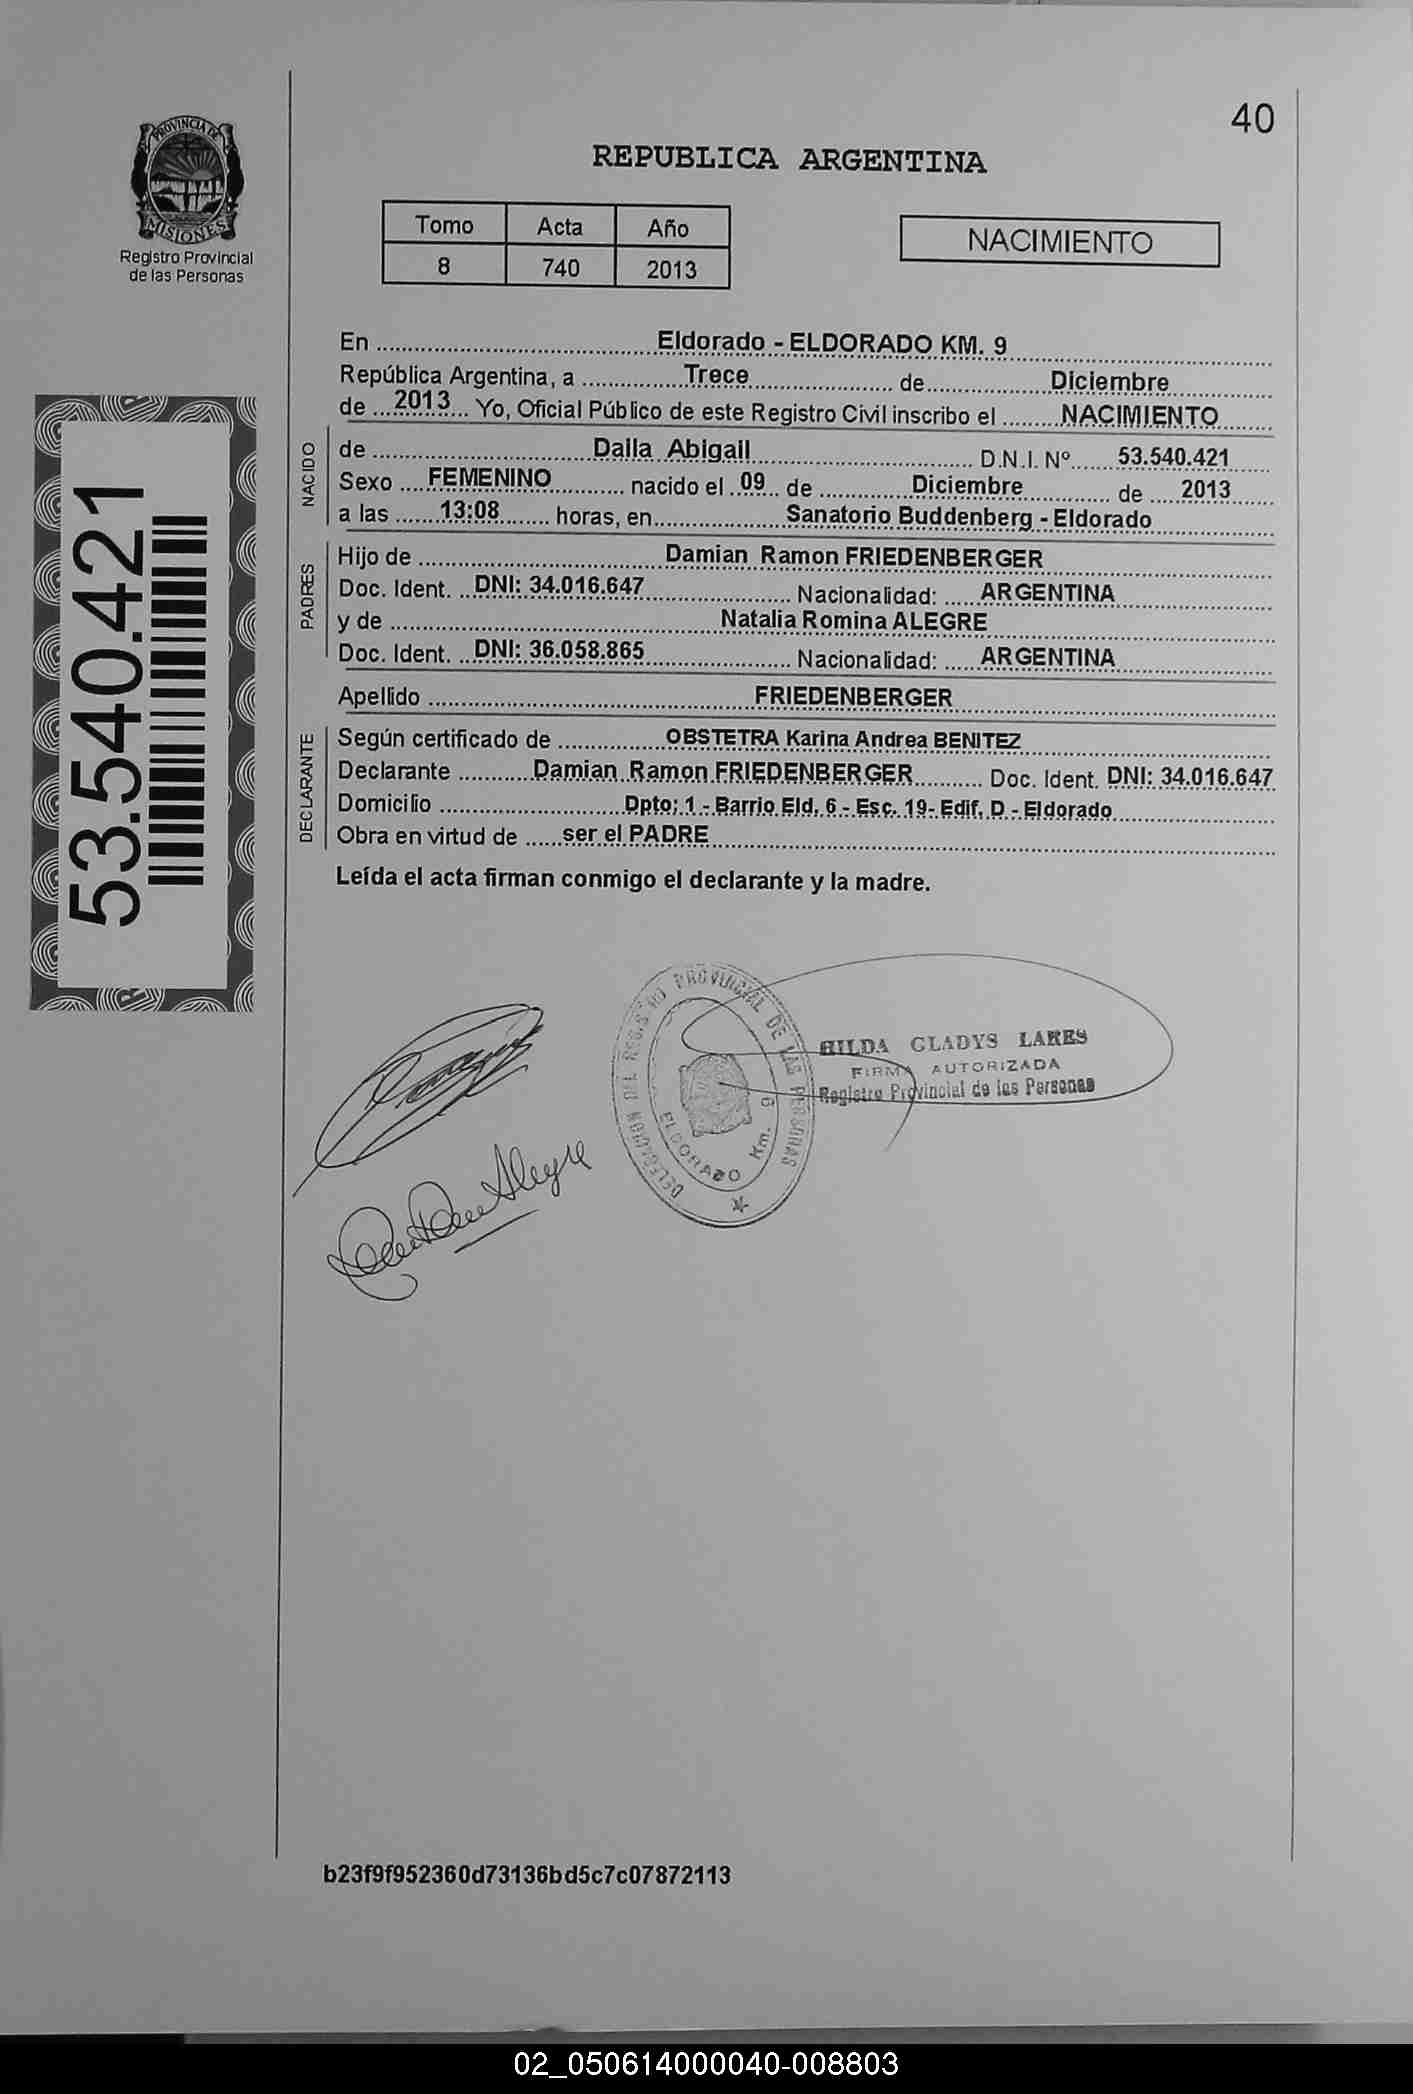 40
PROVINCIA DE
MISIONES
Registro Provincial
de las Personas
REPUBLICA ARGENTINA
Tomo Acta Año
8 740 2013
NACIMIENTO
En Eldorado - ELDORADO KM. 9
República Argentina, a Trece de Diciembre
de 2013 Yo, Oficial Público de este Registro Civil inscribo el NACIMIENTO
NACIDO
de Daila Abigail D.N.I. Nº 53.540.421
Sexo FEMENINO nacido el 09 de Diciembre de 2013
a las 13:08 horas, en Sanatorio Buddenberg - Eldorado
PADRES
Hijo de Damian Ramon FRIEDENBERGER
Doc. Ident. DNI: 34.016.647 Nacionalidad: ARGENTINA
y de Natalia Romina ALEGRE
Doc. Ident. DNI: 36.058.865 Nacionalidad: ARGENTINA
Apellido FRIEDENBERGER
DECLARANTE
Según certificado de OBSTETRA Karina Andrea BENITEZ
Declarante Damian Ramon FRIEDENBERGER Doc. Ident. DNI: 34.016.647
Domicilio Dpto: 1 - Barrio Eld. 6 - Esc. 19- Edif. D - Eldorado
Obra en virtud de ser el PADRE
Leída el acta firman conmigo el declarante y la madre.
53.540.421
DELEGACION DEL REGISTRO PROVINCIAL DE LAS PERSONAS
ELDORADO Km. 9
HILDA GLADYS LARES
FIRMA AUTORIZADA
Registro Provincial de las Personas
Alegre
b23f9f952360d73136bd5c7c07872113
02_050614000040-008803